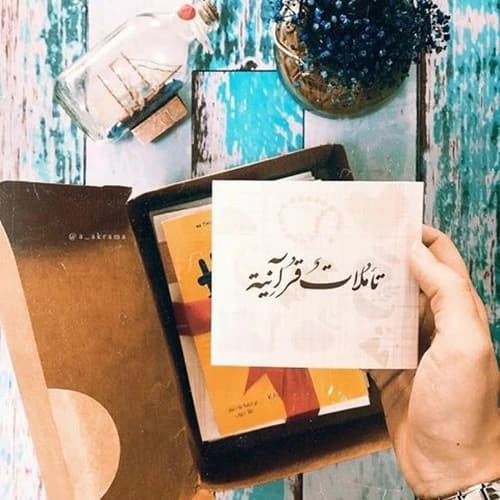 @a_akrama
تأملات قرآنية